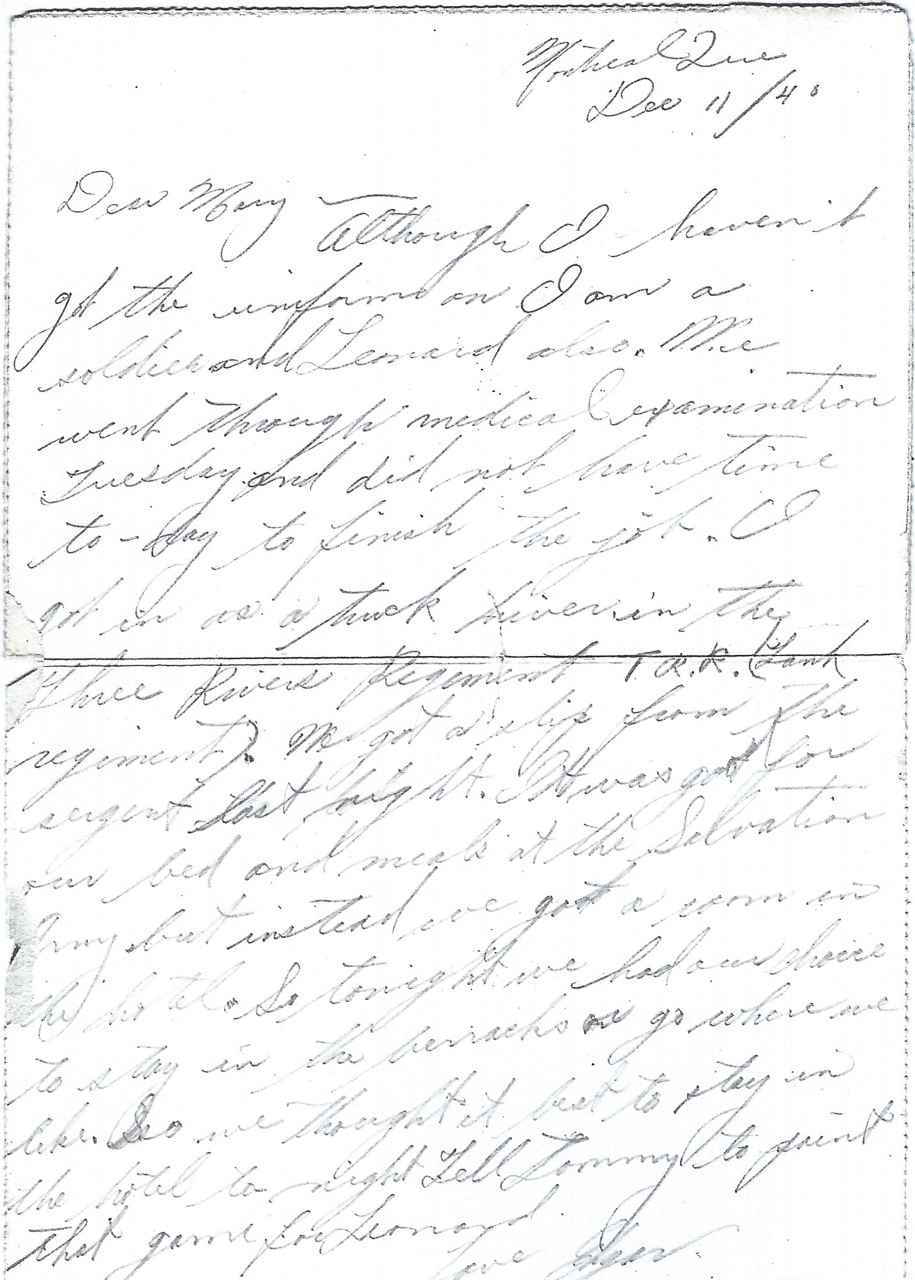 Montreal Que
Dec 11/40
Dear Mary
Although I haven't
got the uniform on I am a
soldier and Leonard also. We
went through medical examination
Tuesday and did not have time
to-day to finish the job. I
got in as a truck driver in the
Three Rivers Regiment T.R.R. (Tank
regiment). We got a slip from the
sergent last night. It was good for
our bed and meals at the Salvation
Army but instead we got a room in
the hotel. So tonight we had our choice
to stay in the berracks or go where we
like. So we thought it best to stay in
the hotel to night Tell Tommy to
that game for Leonard
love Edgar.